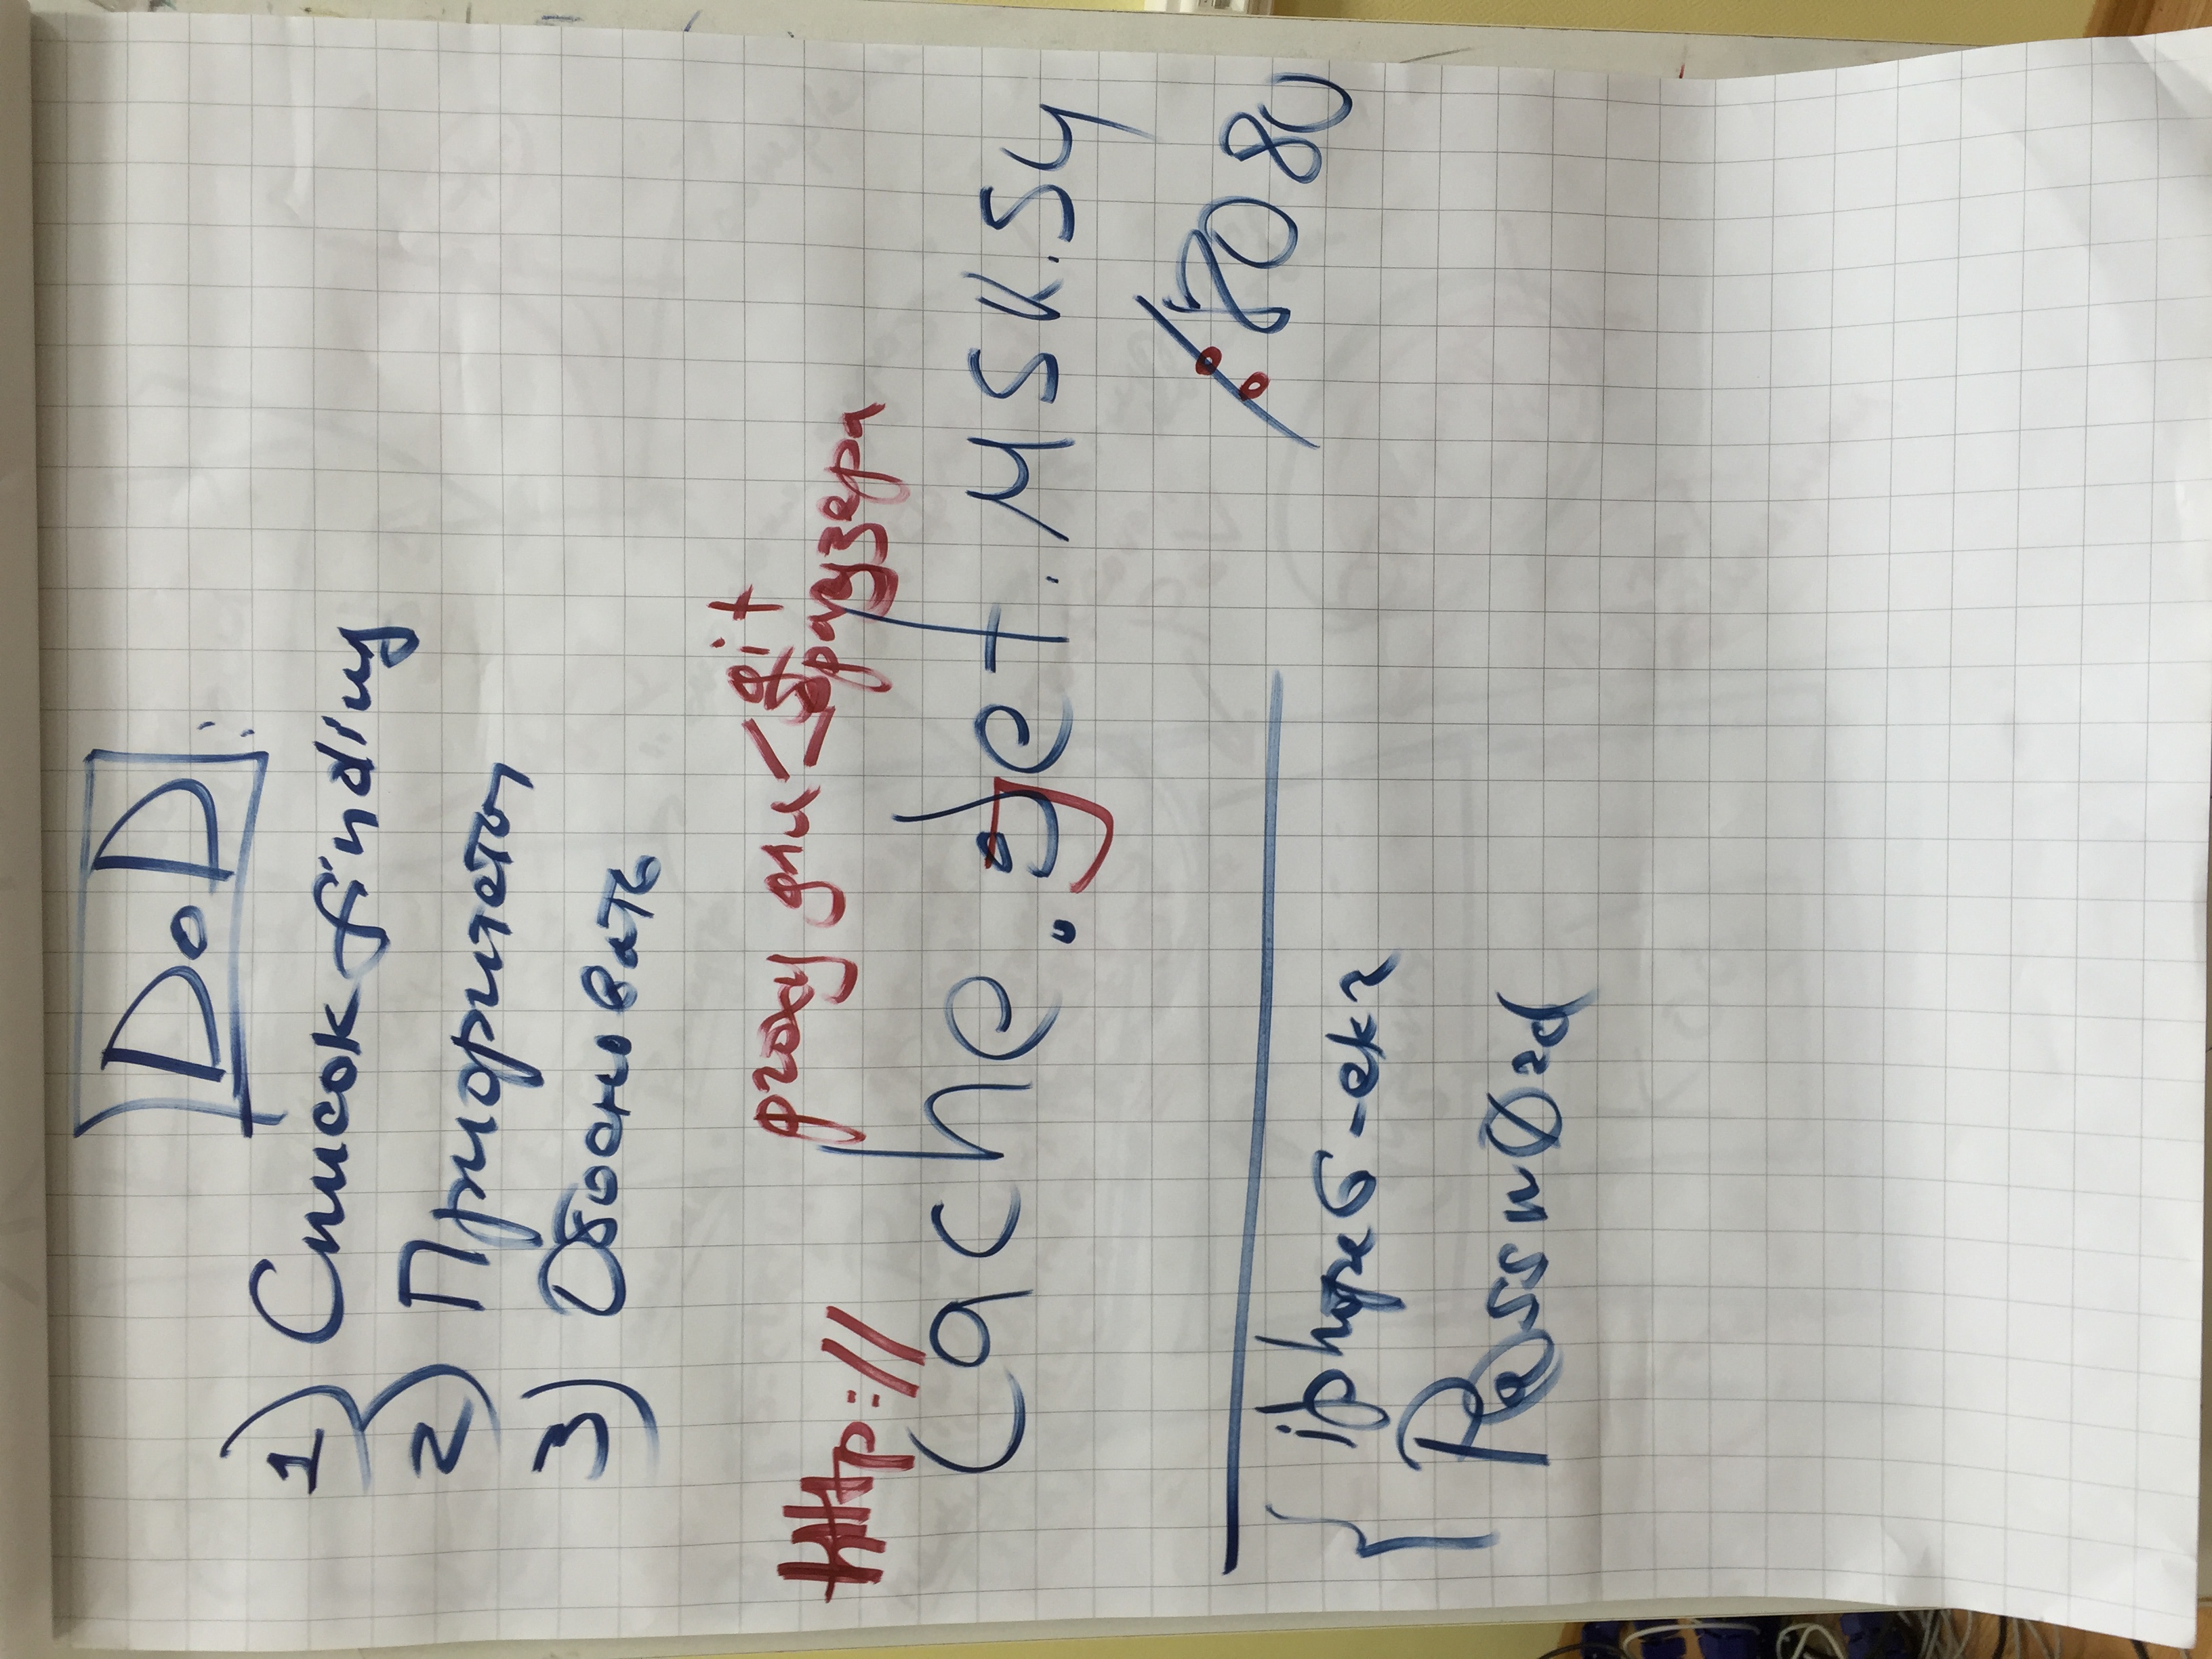 DoD:
1) Список finding
2) Приоритеты
3) Обосновать
proxy для < git
браузера
http://
cache.jet.msk.su
:8080
iphone6-ekz
P@ssw0rd